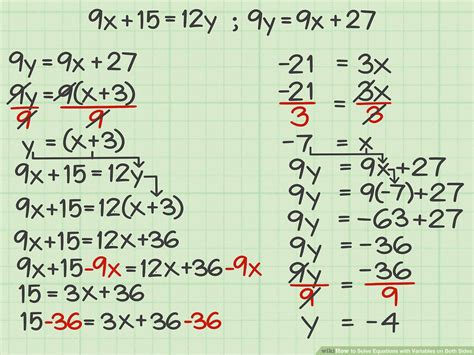 9x+15=12y ; 9y=9x+27
9y=9x+27
9y=9(x+3)
9 9
y=(x+3)
9x+15=12y
9x+15=12(x+3)
9x+15=12x+36
9x+15-9x=12x+36-9x
15=3x+36
15-36=3x+36-36
-21 = 3x
-21 = 3x
3 3
-7 = x
9y = 9x+27
9y = 9(-7)+27
9y = -63+27
9y = -36
9y = -36
9 9
y = -4
wikiHow to Solve Equations with Variables on Both Sides